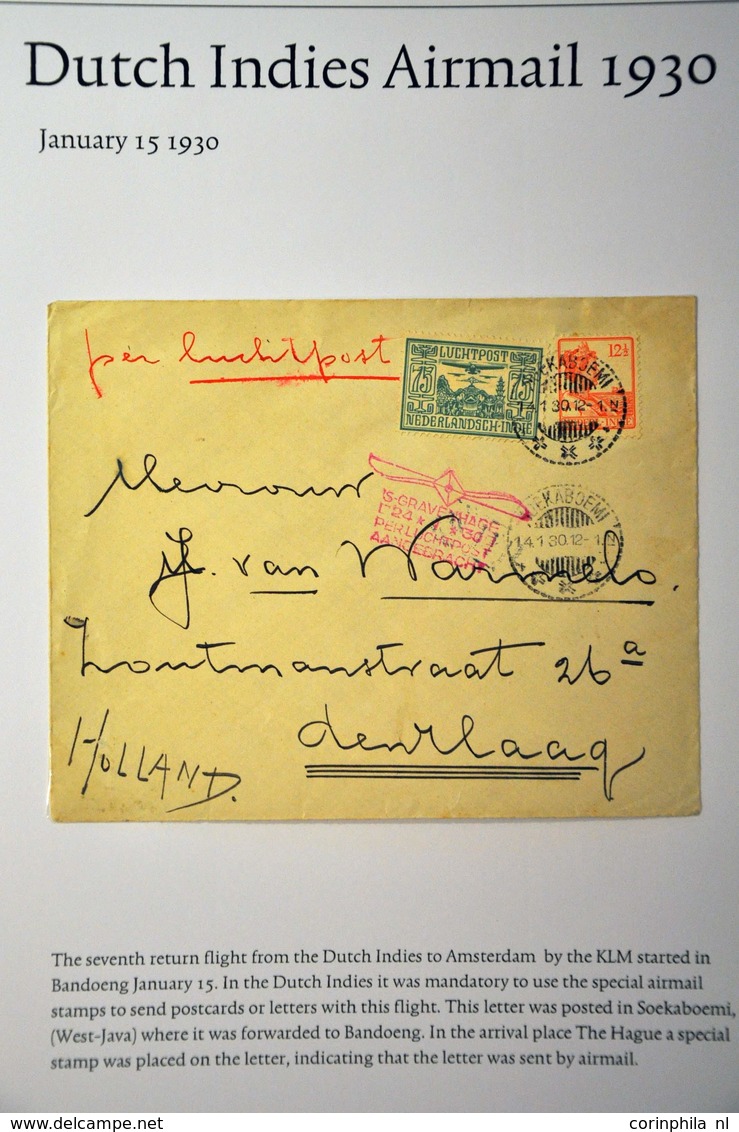 Dutch Indies Airmail 1930
January 15 1930
per luchtpost
LUCHTPOST
75 75
NEDERLANDSCH-INDIE
12½
SOEKABOEMI
14.1.30.12-1.N
'S-GRAVENHAGE
24 1 30
PER LUCHTPOST
AANGEBRACHT
SOEKABOEMI
14.1.30.12-1.N
Mevrouw
van Warmelo.
Houtmanstraat 26a
den Haag
HOLLAND.
The seventh return flight from the Dutch Indies to Amsterdam by the KLM started in
Bandoeng January 15. In the Dutch Indies it was mandatory to use the special airmail
stamps to send postcards or letters with this flight. This letter was posted in Soekaboemi,
(West-Java) where it was forwarded to Bandoeng. In the arrival place The Hague a special
stamp was placed on the letter, indicating that the letter was sent by airmail.
corinphila nl